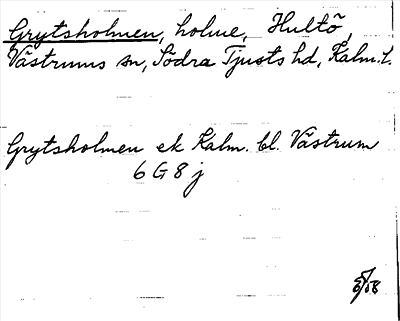 Grytsholmen, holme, Hultö,
Västrums sn, Södra Tjusts hd, Kalm. l.
Grytsholmen ek Kalm. bl. Västrum
6 G 8 j